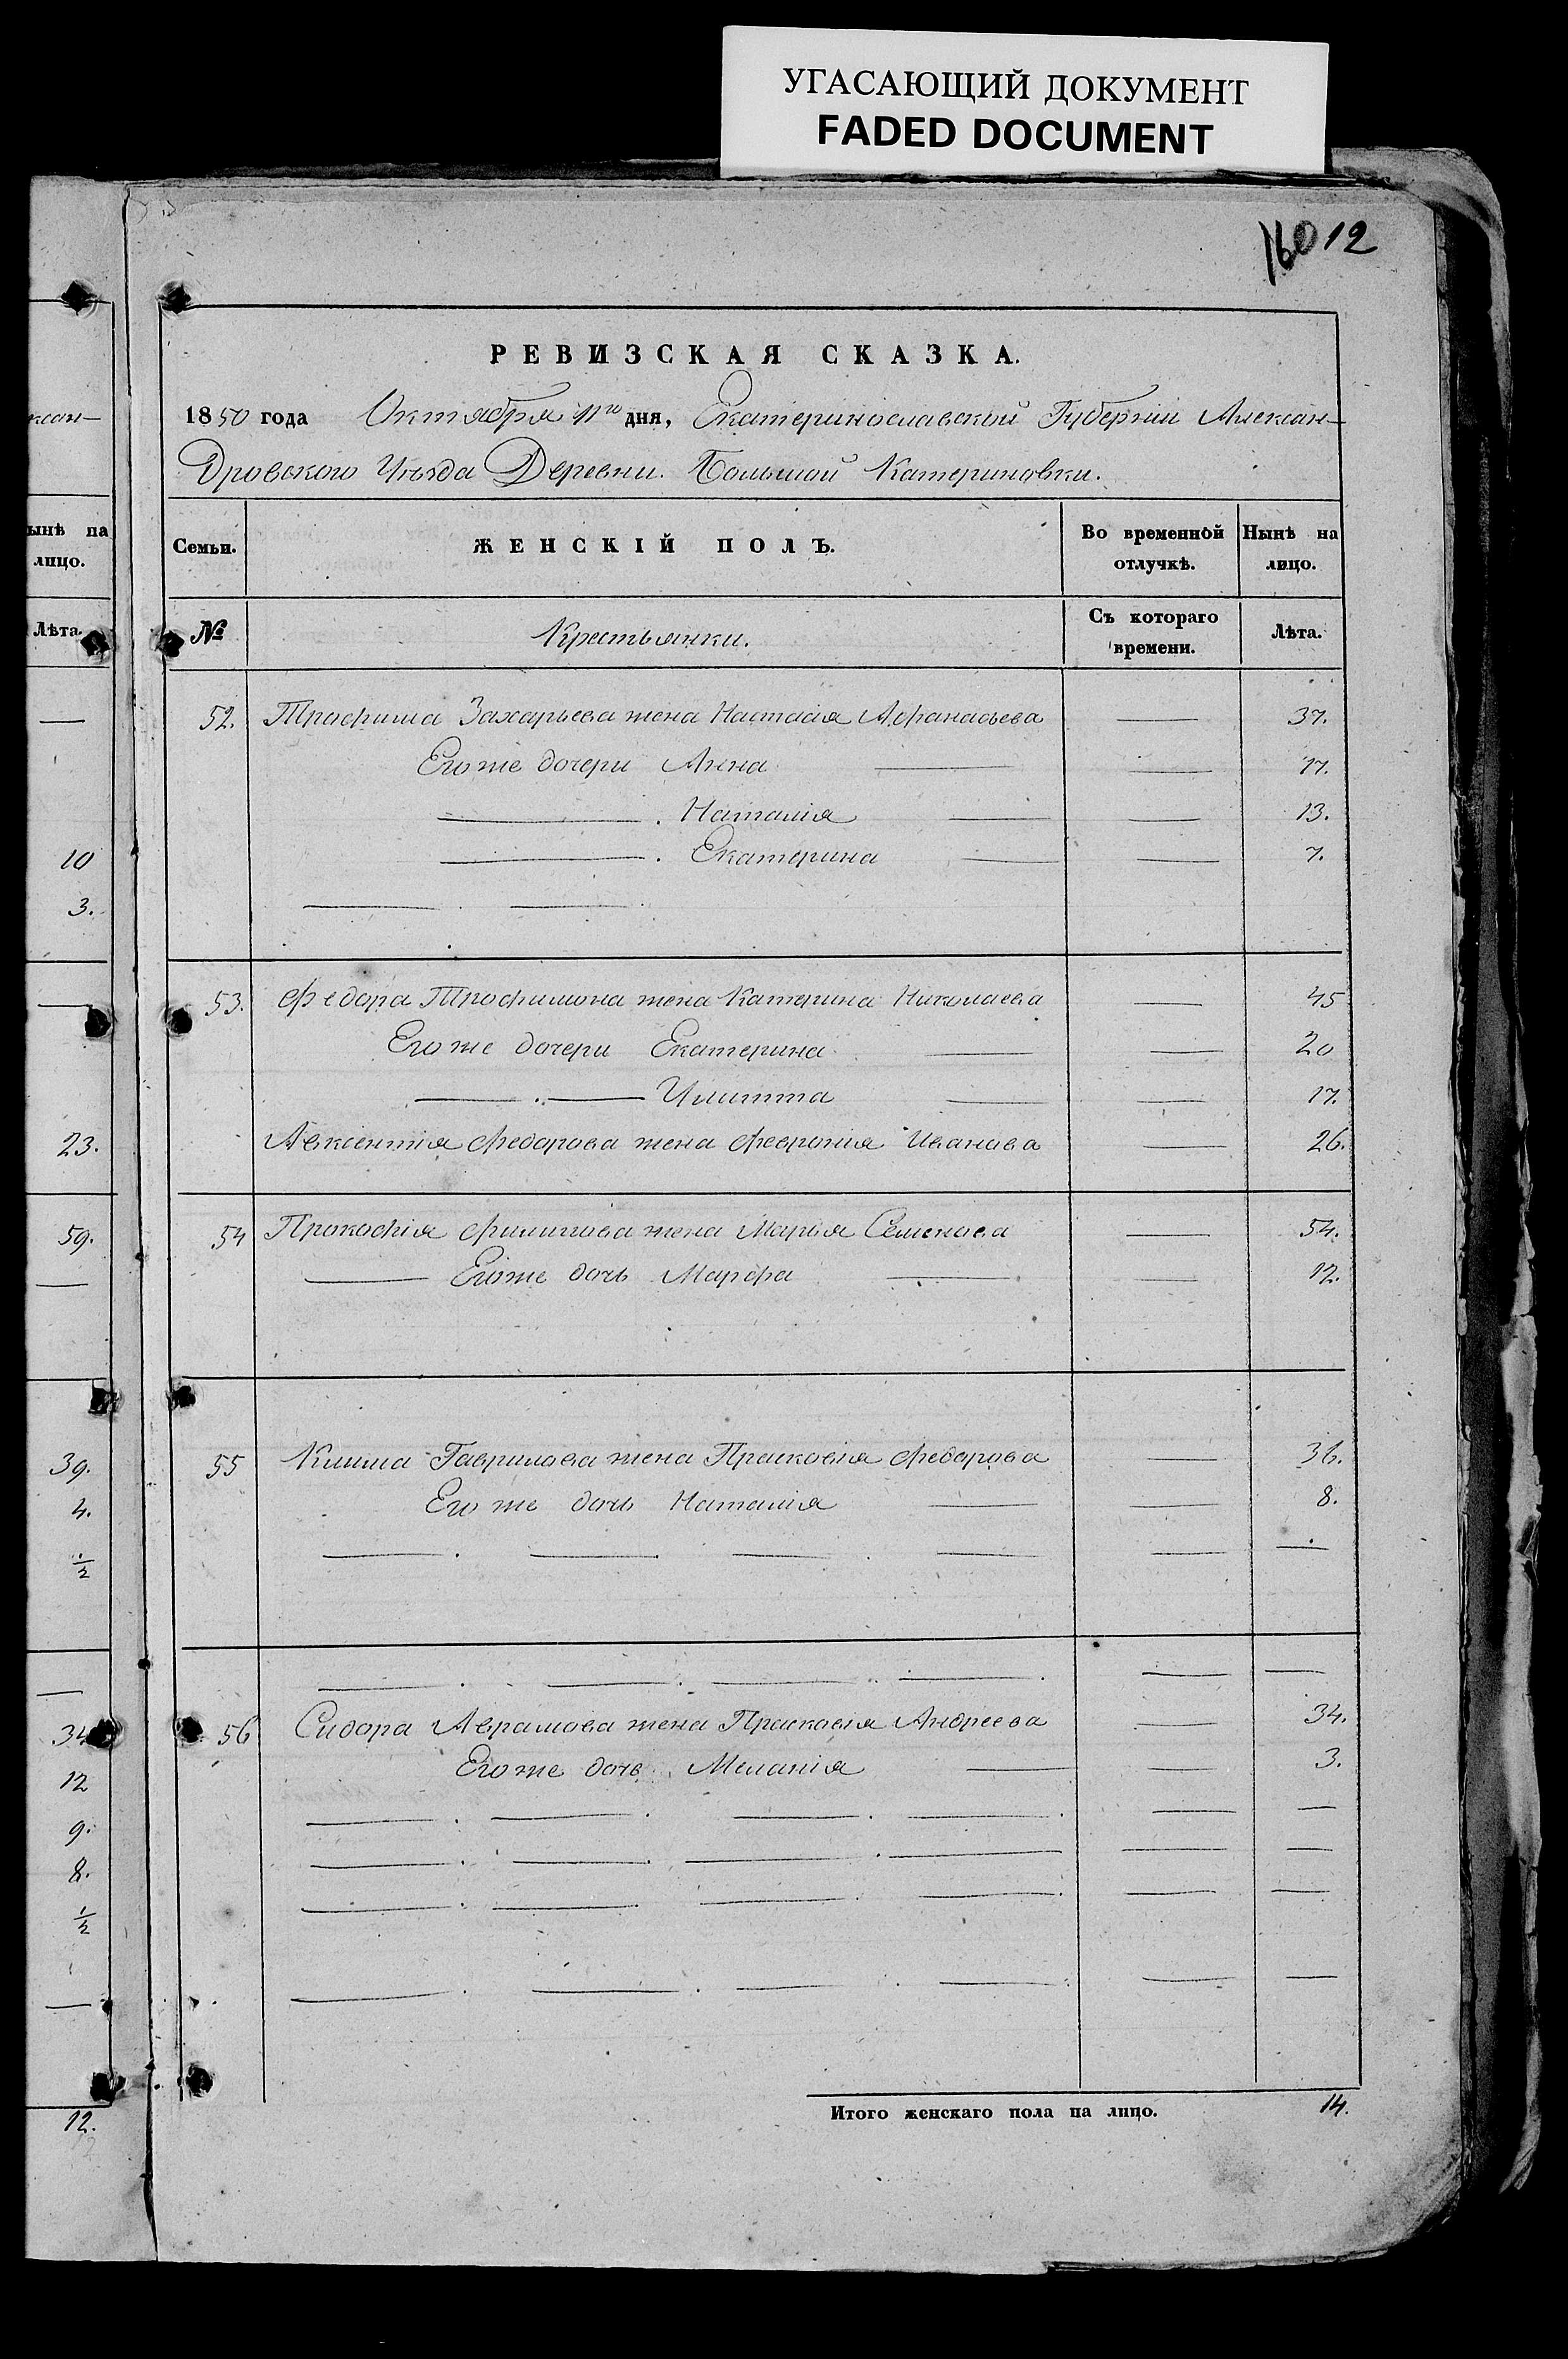 УГАСАЮЩИЙ ДОКУМЕНТ
FADED DOCUMENT
16012
РЕВИЗСКАЯ СКАЗКА.
1850 года Октября 11го дня, Екатеринославской Губерніи Алексан-
дровского Уѣзда Деревни. Большой Катериновки.
Семьи. ЖЕНСКІЙ ПОЛЪ. Во временной отлучкѣ. Нынѣ на лицо.
№ Крестьянки. Съ котораго времени. Лѣта.
52. Трофима Захарьева жена Настасія Афанасьева — 37.
Его же дочери Анна — — 17.
— . Наталія — — 13.
— . Екатерина — — 7.
— . — .
53. Федора Трофимова жена Катерина Николаева — 45
Его же дочери Екатерина — — 20
— . — Улитта — — 17.
Авксентія Федорова жена Февронія Иванова — 26.
54 Прокофія Филипова жена Марья Семенова — 54.
— Его же дочь Марфа — — 12.
55 Клима Гаврилова жена Прасковія Федорова — 36.
Его же дочь Наталія — — 8.
— . — — . — — —
— . — . — . — . — —
56 Сидора Аврамова жена Прасковія Андреева — 34.
Его же дочь Меланія — — 3.
— . — . — . — . — —
— . — . — . — — —
— . — — . — . — —
— . — . — . — . — —
Итого женскаго пола на лицо. 14.
ксан-
ынѣ на
лицо.
Лѣта.
—
10
3.
—
23.
59.
—
39.
4.
½
—
34
12
9.
8.
½
—
12.